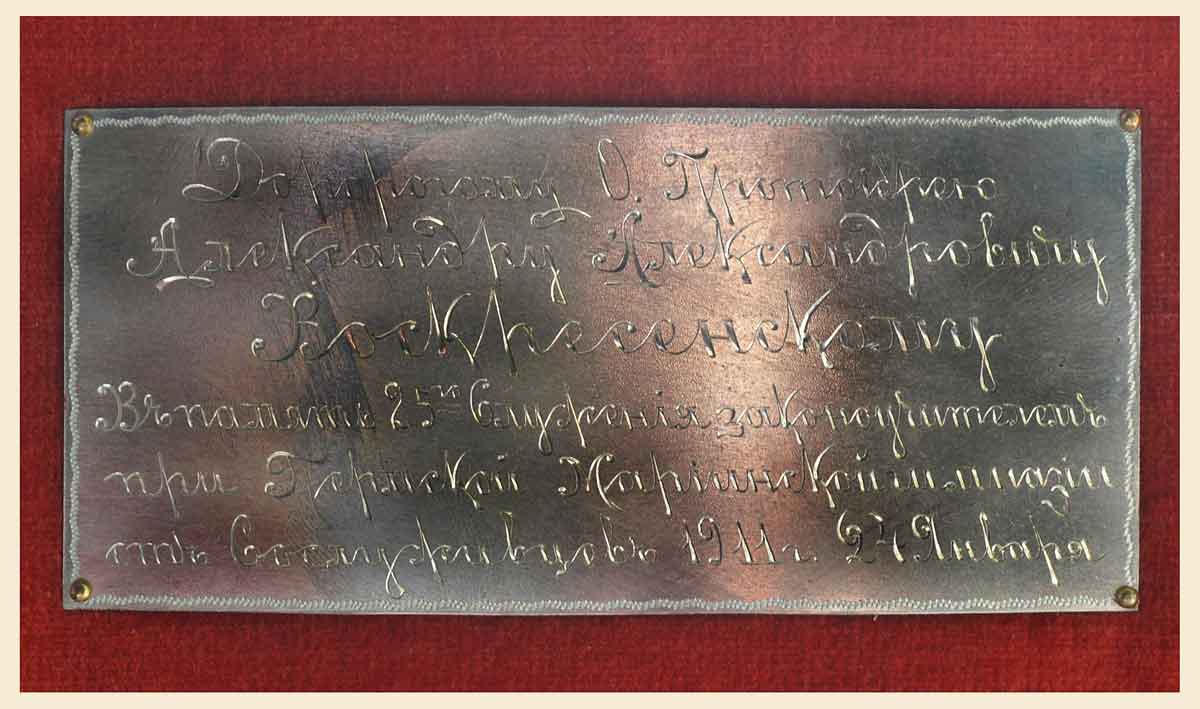 Дорогому О. Протоіерею
Александру Александровичу
Воскресенскому
Въ память 25ти Служенія законоучителемъ
при Пермской Маріинской гимназіи
отъ Сослуживцовъ 1911 г. 24 Января